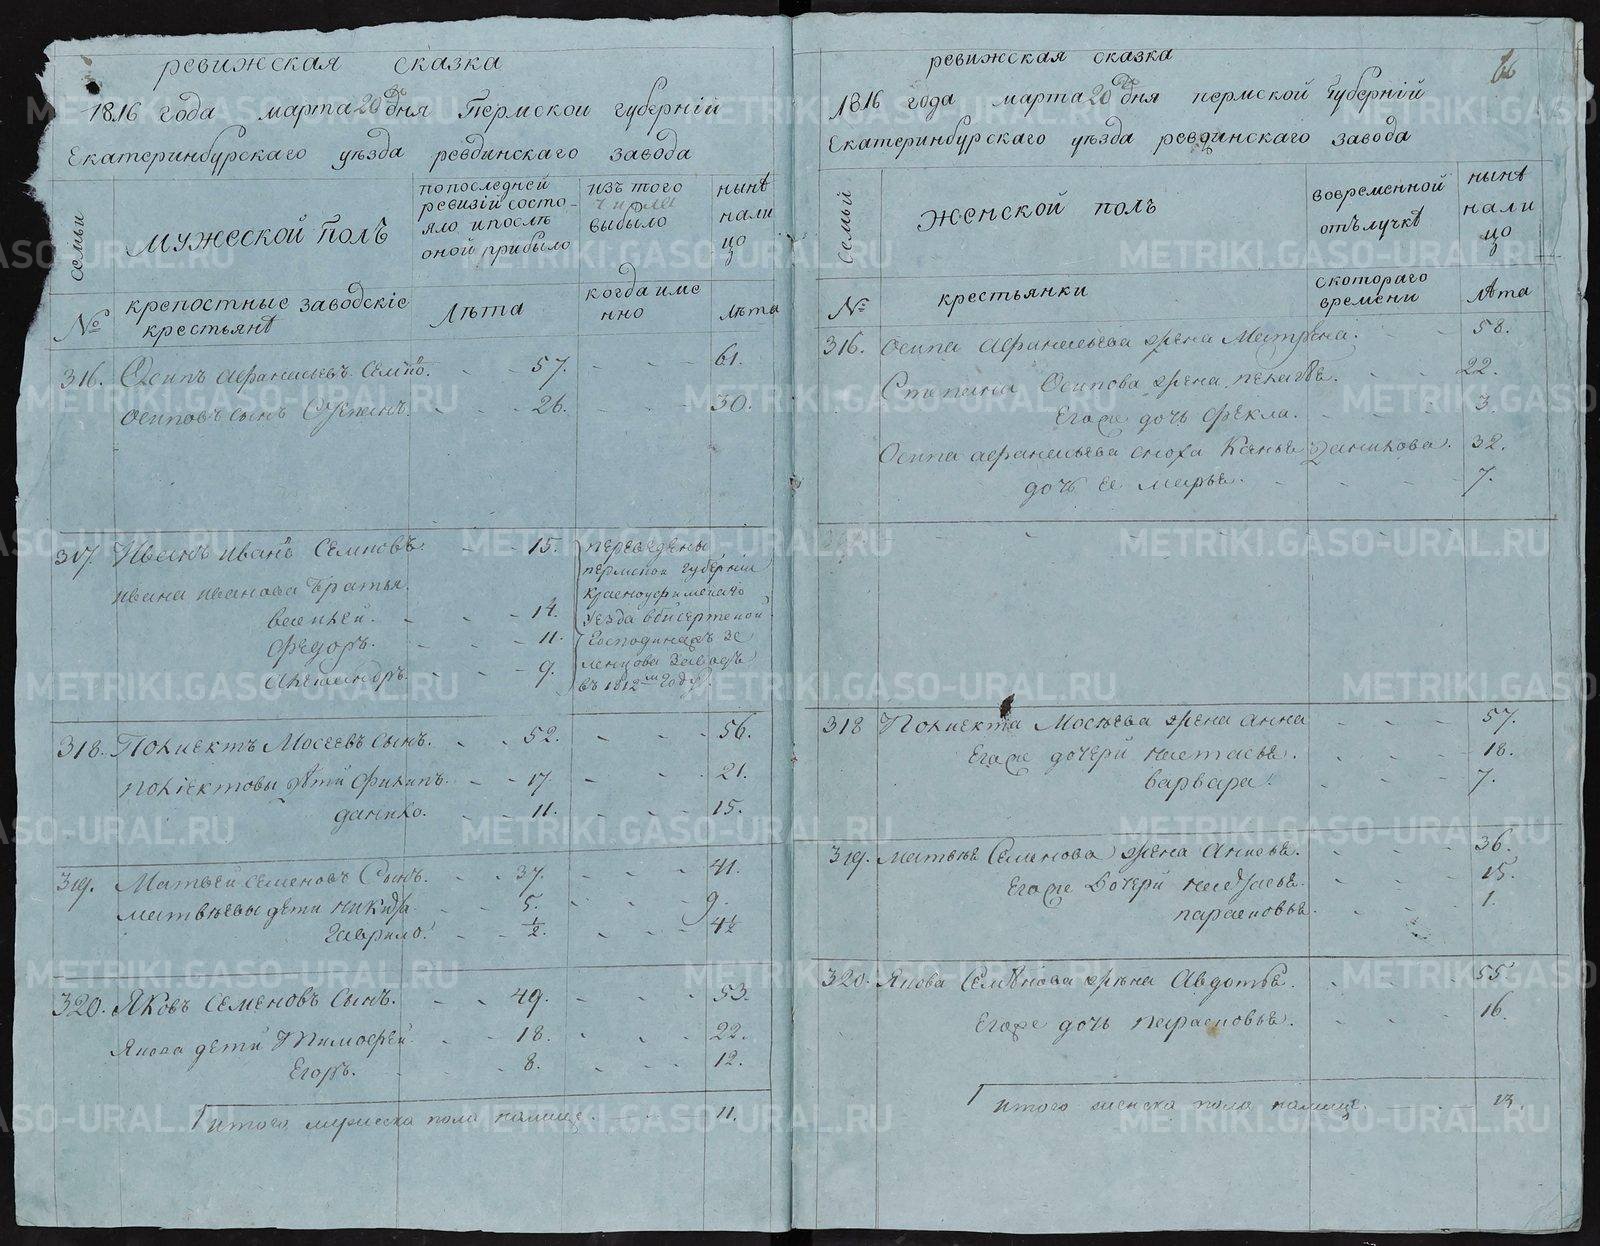 ревижская сказка
1816 года марта 20 дня Пермской губерніи
Екатеринбурскаго уѣзда ревдинскаго завода
семьи
мужеской полъ
по последней ревизіи состояло и после оной прибыло
изъ того числа выбыло
нынѣ на лицо
№
крепостные заводскіе крестьянѣ
лѣта
когда именно
лѣта
316. Осипъ афанасьевъ 57. 61.
осиповъ сынъ Степанъ. 26. 30.
317. Иванъ иванъ Семновъ. 15.
ивана иванова братья
василей. 14.
Федоръ. 11.
александръ. 9.
переведены
пермской губерніи
красноуфимскаго
уезда в бисертской
господина зе
ленцова заводъ
въ 1812м году
318. Полиектъ Мосеевъ сынъ. 52. 56.
полиектовы дѣти филипъ. 17. 21.
данило. 11. 15.
319. Матвей семеновъ Сынъ. 37. 41.
матвѣевы дети никита. 5. 9.
Гаврило. 1/2. 4 1/2
320. Яковъ семеновъ сынъ. 49. 53.
Якова дети Тимофей. 18. 22.
Егоръ. 8. 12.
итого мужеска пола налице. 11.
66
ревижская сказка
1816 года марта 20 дня пермской губерніи
Екатеринбурскаго уѣзда ревдинскаго завода
семьи
женской полъ
во временной отълучкѣ
нынѣ на лицо
№
крестьянки
с котораго времени
лѣта
316. Осипа афанасьева жена Матрена. 58.
Степана Осипова жена пелагѣе. 22.
Егоже дочь фекла. 3.
Осипа афанасьева сноха Данилова. 32.
дочь ее марья. 7.
318 Полиекта Мосѣева жена анна 57.
Егоже дочери настасье. 18.
варвара. 7.
319. матвѣе Семенова жена Анисье. 36.
Егоже дочери настасье. 15.
парасковье. 1.
320. Якова Семѣнова жѣна Авдотье. 55.
Егоже дочь парасковье. 16.
итого женска пола налице. 13
METRIKI.GASO-URAL.RU